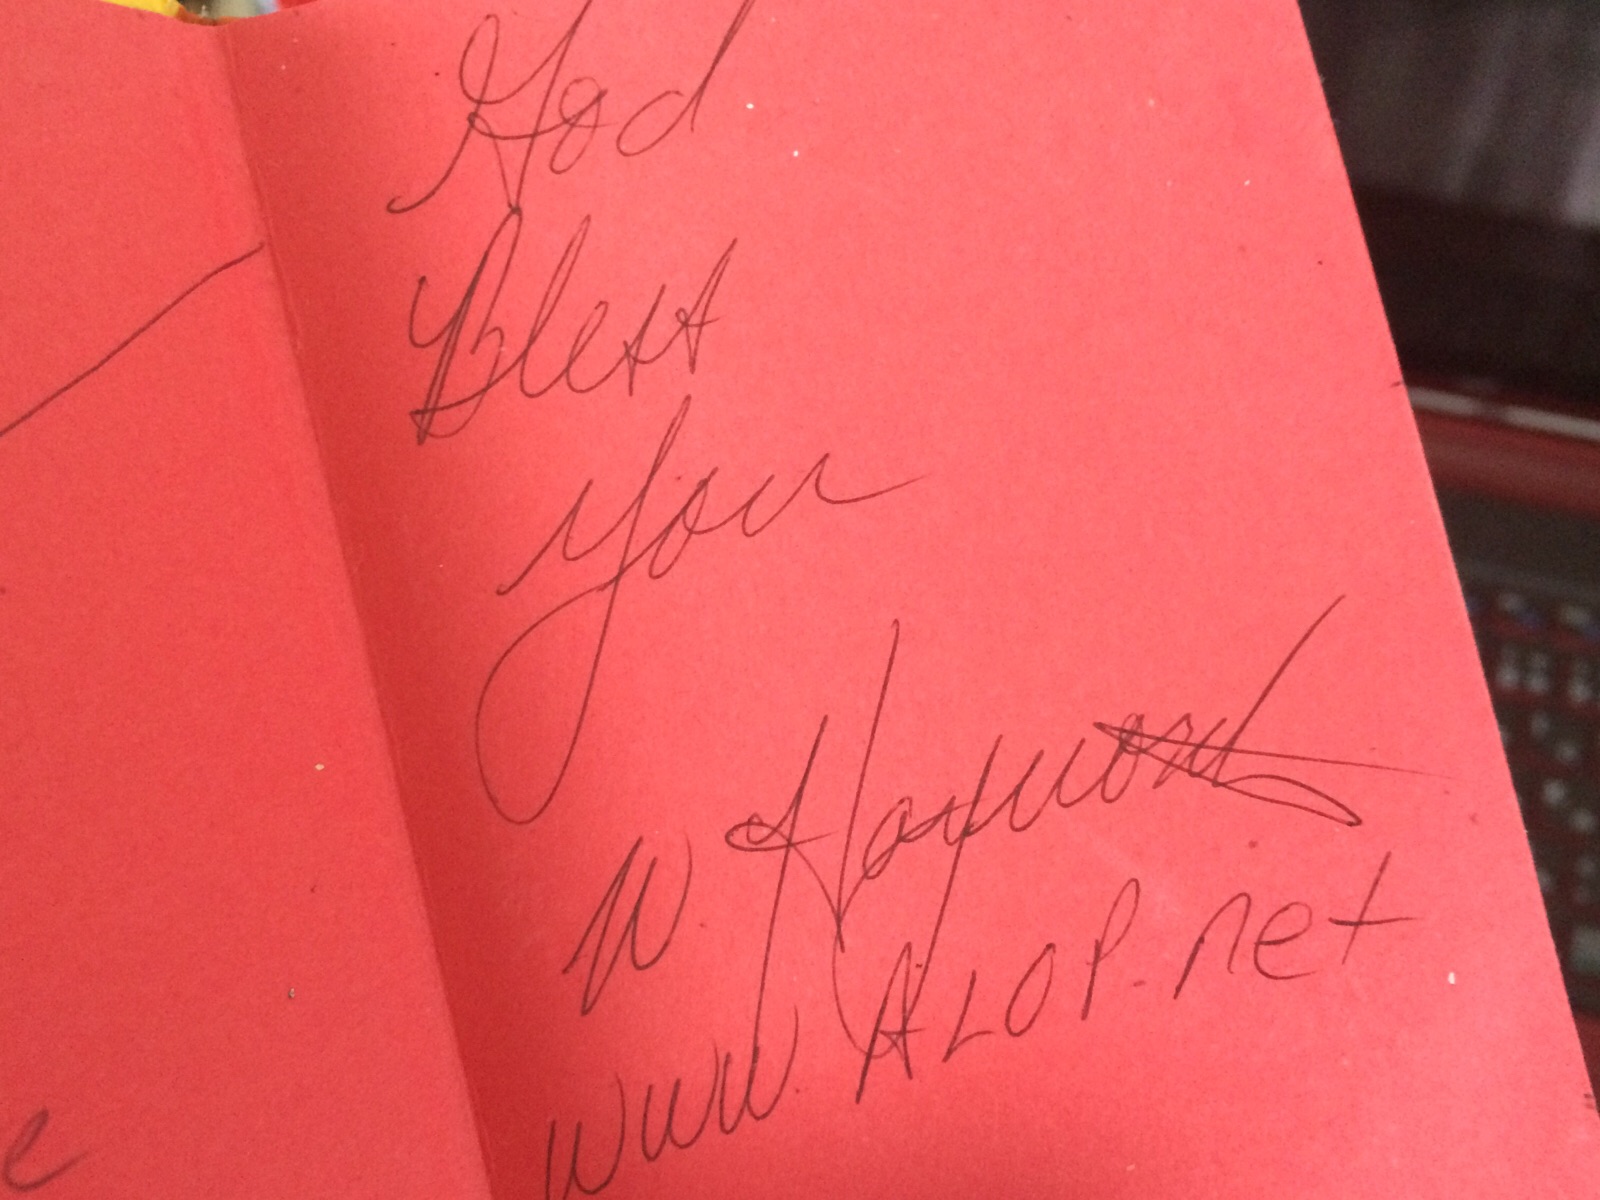 God
Bless
You
W. Hayword
WWW.ALOP.net
e